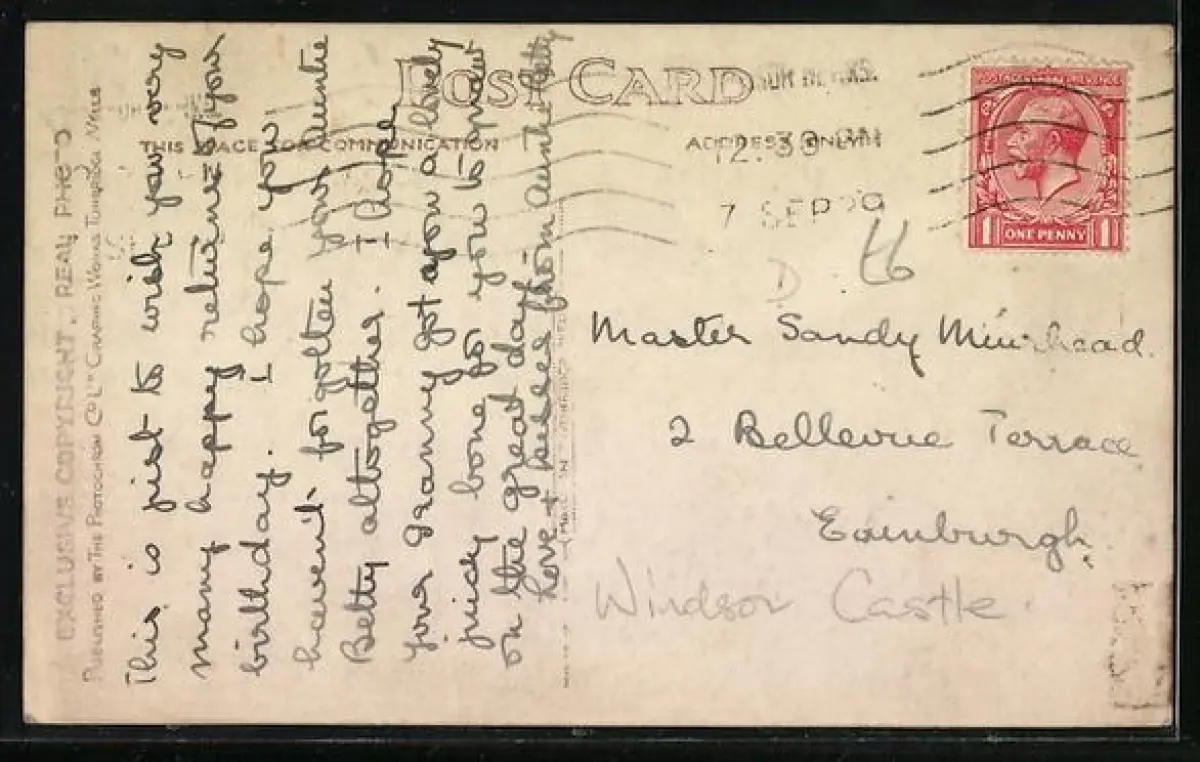 POST CARD
THIS SPACE FOR COMMUNICATION
ADDRESS ONLY
12.30 PM
7 SEP 29
EXCLUSIVE COPYRIGHT. REAL PHOTO
PUBLISHED BY THE PHOTOCHROM CO LTD TUNBRIDGE WELLS
This is just to wish you very
many happy returns of your
birthday. I hope you
haven't forgotten your auntie
Betty altogether. I hope
your granny got you a lovely
juicy bone for you to open
on the great day
Love + kisses from auntie Betty
POSTAGE REVENUE
1 ONE PENNY 1
Master Sandy Muirhead.
2 Bellevue Terrace
Edinburgh.
Windsor Castle